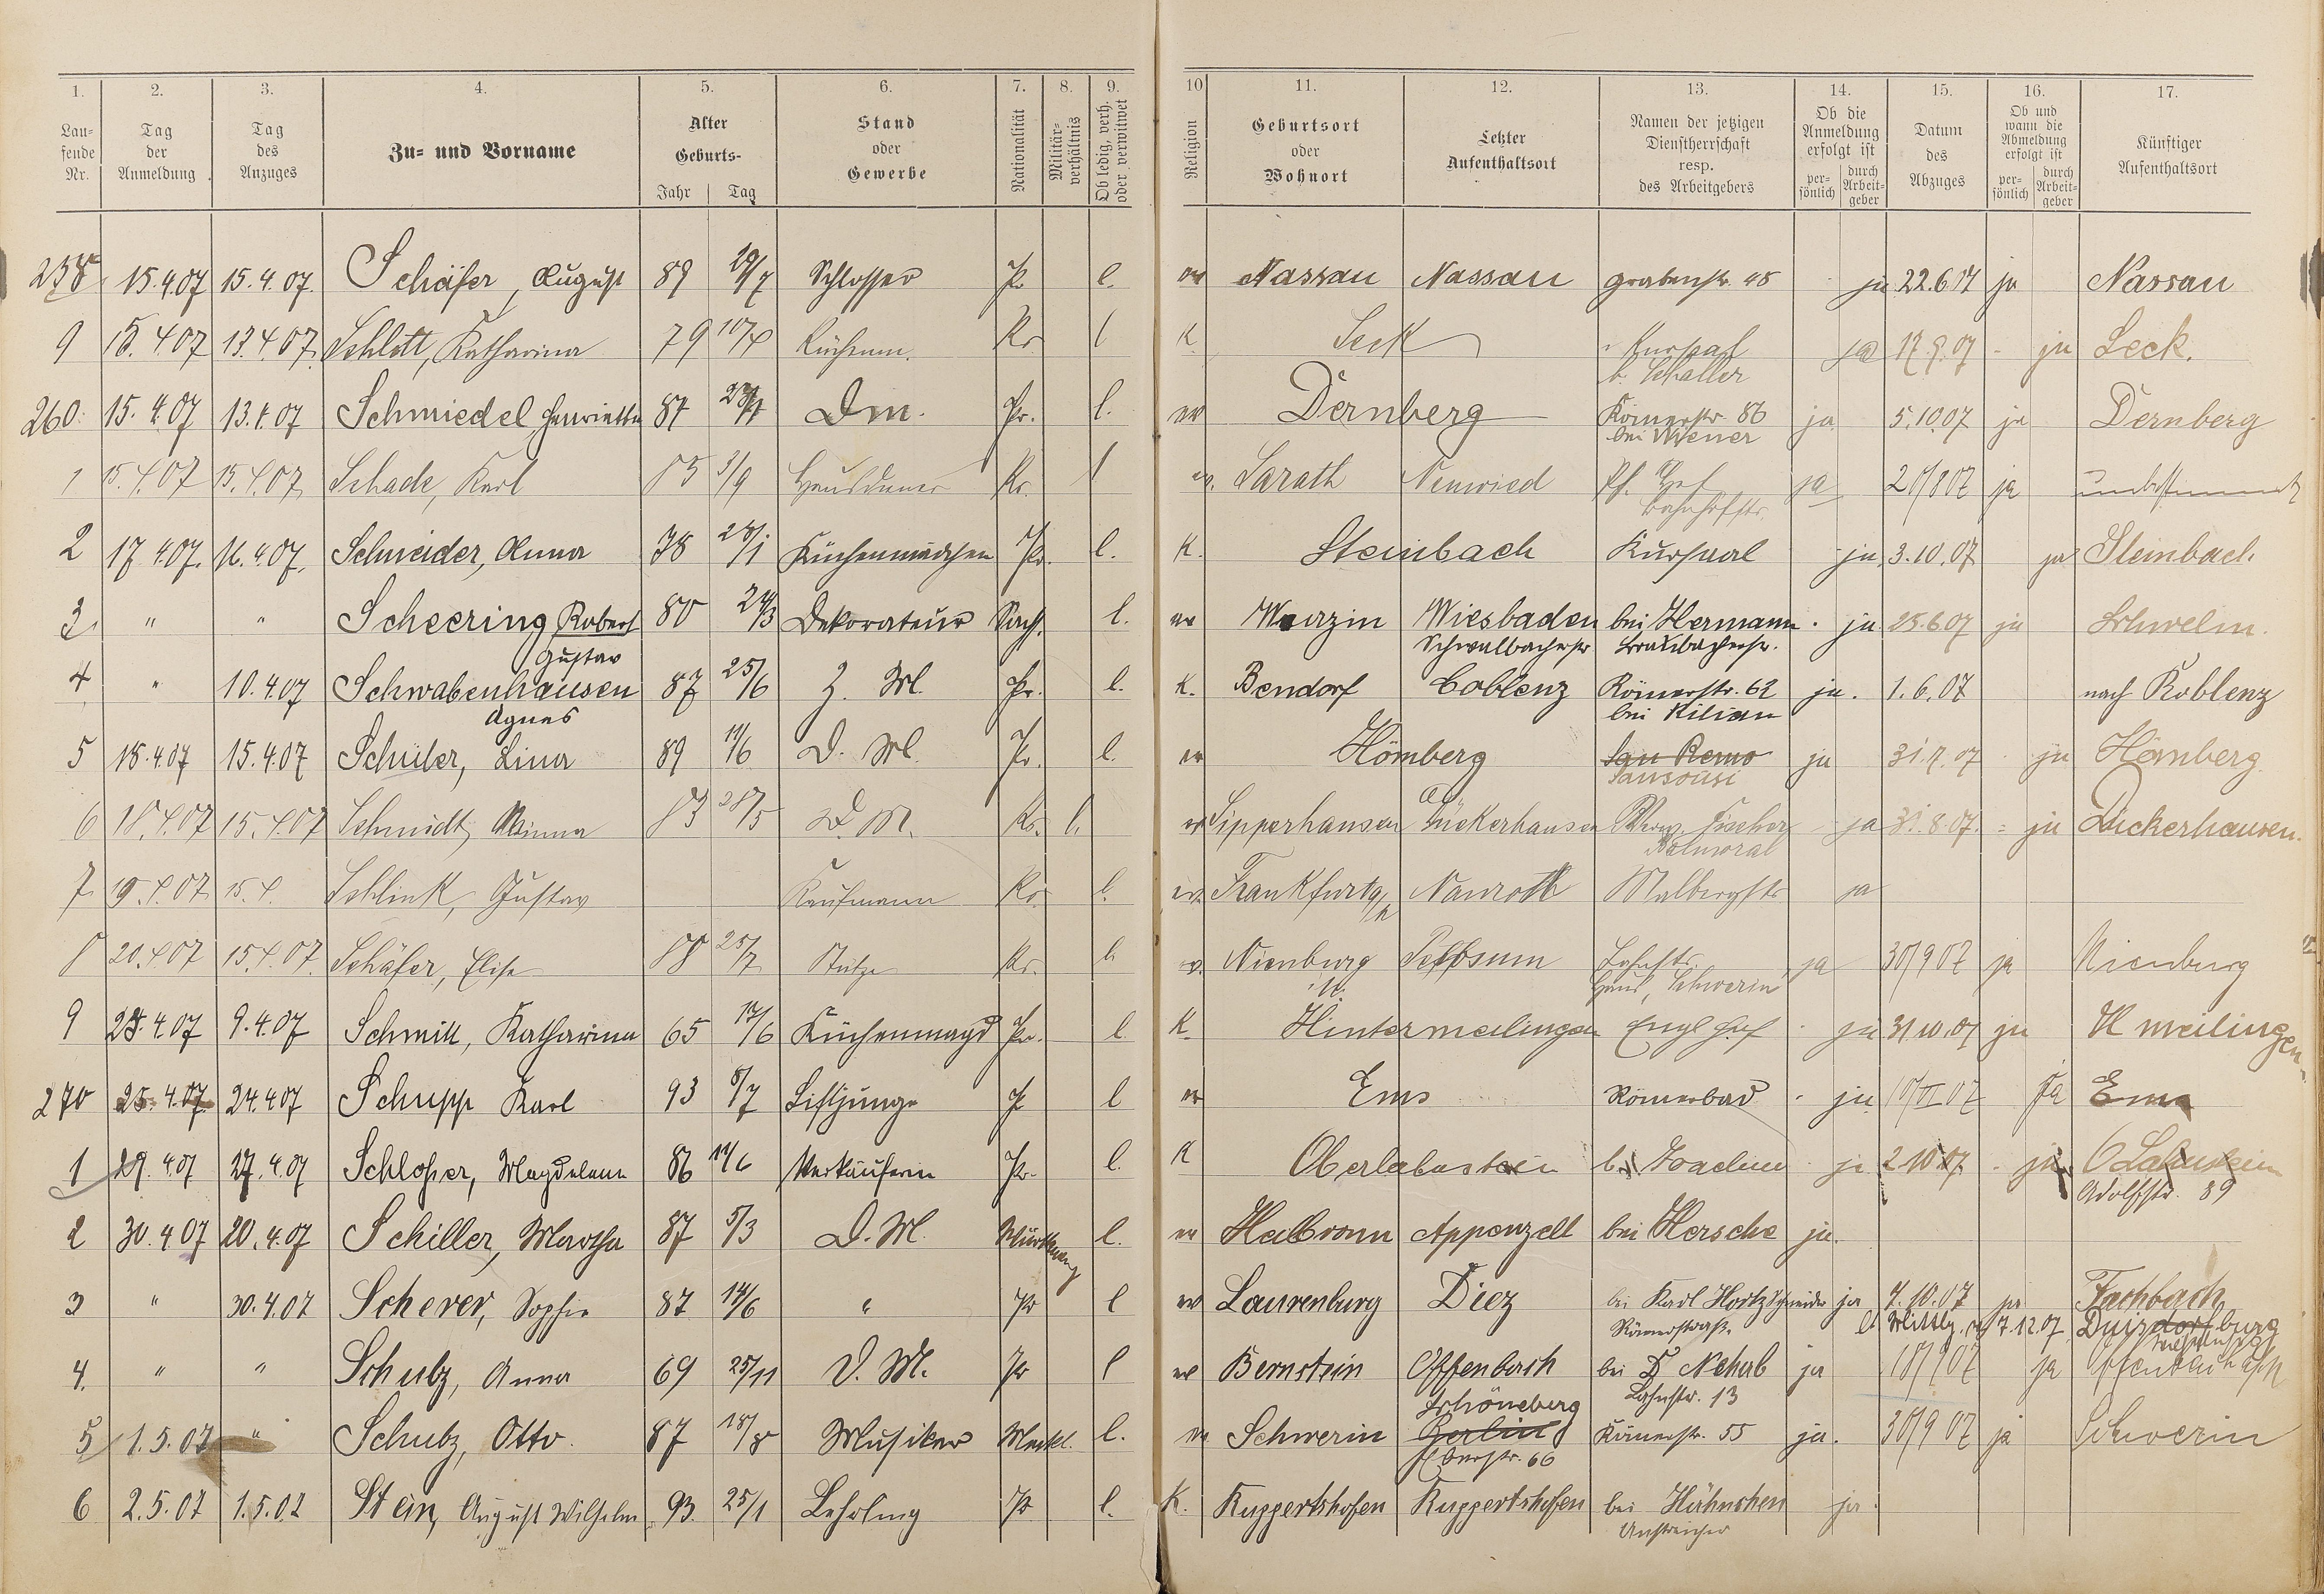 1. 2. 3. 4. 5. 6. 7. 8. 9. 10 11. 12. 13. 14. 15. 16. 17.
Lau-
fende
Nr.
Tag
der
Anmeldung
Tag
des
Anzuges
Zu- und Vorname
Alter
Geburts-
Jahr Tag
Stand
oder
Gewerbe
Nationalität
Militär-
verhältnis
Ob ledig, verh.
oder verwitwet
Religion
Geburtsort
oder
Wohnort
Letzter
Aufenthaltsort
Namen der jetzigen
Dienstherrschaft
resp.
des Arbeitgebers
Ob die
Anmeldung
erfolgt ist
per-
sönlich
durch
Arbeit-
geber
Datum
des
Abzuges
Ob und
wann die
Abmeldung
erfolgt ist
per-
sönlich
durch
Arbeit-
geber
Künftiger
Aufenthaltsort
258 15.4.07 15.4.07. Schäfer, August 89 29/7 Schlosser Pr l. ev Nassau Nassau grabenstr. 48 ja 22.6.07 ja Nassau
9 15.4.07 13.4.07. Schlott, Katharina 79 Pr l K Seck Kursaal ja 17.9.07 - ja Seck.
b. Schaller
260. 15.4.07 13.4.07 Schmiedel Henriette 87 Dm. Pr. l. ev Dernberg Römerstr. 86 ja 5.10.07 ja Dernberg
bei Wiener
1 15.4.07 15.4.07 Schade, Karl 85 3/9 Hausdiener Pr. l ev. Sarath Neuwied Pf. Hof ja 20/8 07 ja unbestimmt
Bahnhofstr.
2 17.4.07. 16.4.07. Schneider, Anna 78 28/1 Küchenmädchen Pr. l. K. Steinbach Kursaal ja 3.10.07 ja Steinbach
3 " " Scheering Robert 80 24/3 Dekorateur Sachs. l. ev Wurzin Wiesbaden bei Hermann ja 25.6.07 ja Schwelm.
Gustav Schwalbacherstr Braubacherstr.
4 " 10.4.07 Schwabenhausen 87 25/6 Z. M. Pr. l. K. Bendorf Coblenz Römerstr. 62 ja. 1.6.07 nach Koblenz
Agnes bei Kilian
5 18.4.07 15.4.07 Schüler, Lina 89 11/6 D. M. Pr. l. ev Hömberg San Remo ja 31.7.07 ja Hömberg
Sansousi
6 18.4.07 15.4.07 Schmidt, Minna 83 28/5 D. M. Pr. l. ev Sipperhausen Dickerhausen Fischer ja 31.8.07. - ja Dickerhausen.
Balmoral
7 19.4.07 15.4. Schlink, Gustav Kaufmann Pr. l. ev. Frankfurt a/M Nauroth Malbergstr ja
8 20.4.07 15.4.07. Schäfer, Elise 88 25/7 Stütze Pr. l. ev. Nienburg Lahnstr. ja 30/9 07 ja Nienburg
Haus, Schwerin
9 23.4.07 9.4.07 Schmitt, Katharina 65 17/6 Küchenmagd Pr. l. K. Hintermeilingen Engl Hof ja 31.10.07 ja H meilingen
270 25.4.07. 24.4.07 Schupp Karl 93 8/7 Liftjunge Pr l ev Ems Römerbad ja 10/VI 07 ja Ems
1 29.4.07 27.4.07 Schlosser, Magdalena 86 11/6 Verkäuferin Pr. l. K Oberlahnstein b. Joachim ja 2.10.07. - ja OLahnstein
Adolfstr. 89
2 30.4.07 20.4.07 Schiller, Martha 87 5/3 D. M. Württemberg l. ev Heilbronn Appenzell bei Hersche ja.
3 " 30.4.07 Scherer, Sophie 87 14/6 " Pr l ev Laurenburg Diez bei Karl Hortz Schneider ja 7.10.07 ja Fachbach
Römerstraße lt Mittlg. 7.12.07 Duisburg
4. " " Schulz, Anna 69 25/11 D. M. Pr l ev Bernstein Offenbach bei Dr Nehab ja 18/9 07 ja Offenbach
Lahnstr. 13
5 1.5.07 " Schulz, Otto. 87 18/8 Musiker Meckl. l. ev Schwerin Schöneberg Berlin Römerstr. 55 ja. 30/9 07 ja Schwerin
Eberstr. 66
6 2.5.07 1.5.07 Stein, August Wilhelm 93. 25/1 Lehrling Pr l. K. Ruppertshofen Ruppertshofen bei Hähnchen ja.
Anstreicher